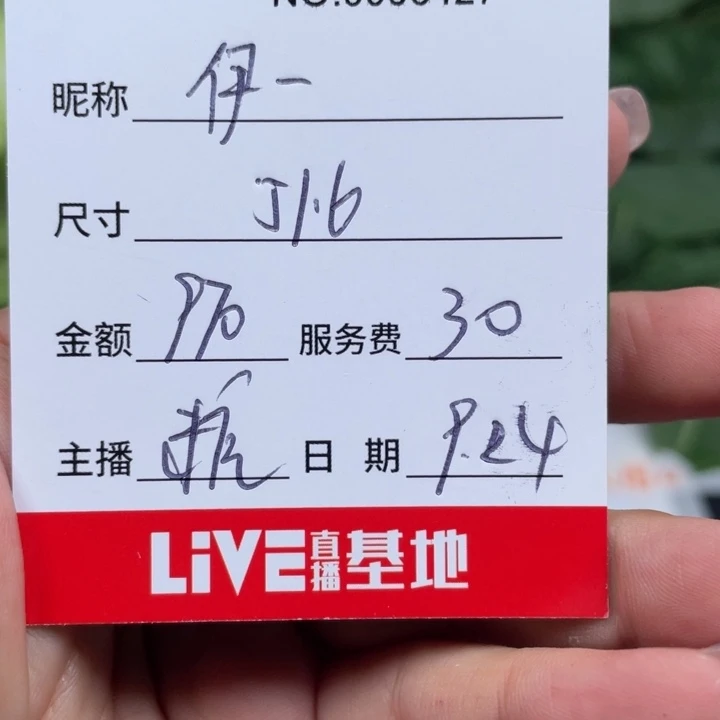 昵称 伊一
尺寸 51.6
金额 970 服务费 30
主播 日期 9.24
LiVE直播基地